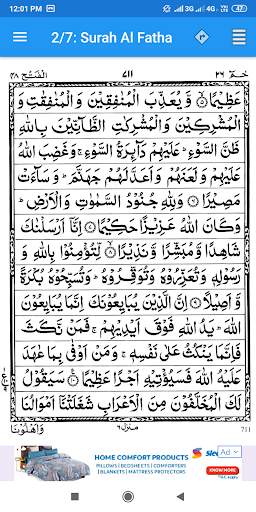 12:01 PM 3G 4G 47
2/7: Surah Al Fatha
حٰمٓ ٢٦ ٧١١ الفتح ٤٨
عَظِيْمًا ۙ﴿۵﴾ وَّيُعَذِّبَ الْمُنٰفِقِيْنَ وَ الْمُنٰفِقٰتِ وَ
الْمُشْرِكِيْنَ وَ الْمُشْرِكٰتِ الظَّآنِّيْنَ بِاللّٰهِ
ظَنَّ السَّوْءِ ؕ عَلَيْهِمْ دَآئِرَةُ السَّوْءِ ۚ وَ غَضِبَ اللّٰهُ
عَلَيْهِمْ وَ لَعَنَهُمْ وَ اَعَدَّ لَهُمْ جَهَنَّمَ ؕ وَ سَآءَتْ
مَصِيْرًا ﴿۶﴾ وَ لِلّٰهِ جُنُوْدُ السَّمٰوٰتِ وَ الْاَرْضِ ؕ
وَ كَانَ اللّٰهُ عَزِيْزًا حَكِيْمًا ﴿۷﴾ اِنَّاۤ اَرْسَلْنٰكَ
شَاهِدًا وَّ مُبَشِّرًا وَّ نَذِيْرًا ۙ﴿۸﴾ لِّتُؤْمِنُوْا بِاللّٰهِ وَ
رَسُوْلِهٖ وَ تُعَزِّرُوْهُ وَ تُوَقِّرُوْهُ ؕ وَ تُسَبِّحُوْهُ بُكْرَةً
وَّ اَصِيْلًا ﴿۹﴾ اِنَّ الَّذِيْنَ يُبَايِعُوْنَكَ اِنَّمَا يُبَايِعُوْنَ
اللّٰهَ ؕ يَدُ اللّٰهِ فَوْقَ اَيْدِيْهِمْ ۚ فَمَنْ نَّكَثَ
فَاِنَّمَا يَنْكُثُ عَلٰى نَفْسِهٖ ۚ وَ مَنْ اَوْفٰى بِمَا عٰهَدَ
عَلَيْهُ اللّٰهَ فَسَيُؤْتِيْهِ اَجْرًا عَظِيْمًا ﴿۱۰﴾ سَيَقُوْلُ
لَكَ الْمُخَلَّفُوْنَ مِنَ الْاَعْرَابِ شَغَلَتْنَاۤ اَمْوَالُنَا
711 منزل ٦ وَاَهْلُوْنَا
HOME COMFORT PRODUCTS
PILLOWS | BEDSHEETS | COMFORTERS
| BLANKETS | MATTRESS PROTECTORS
Ad
KNOW MORE